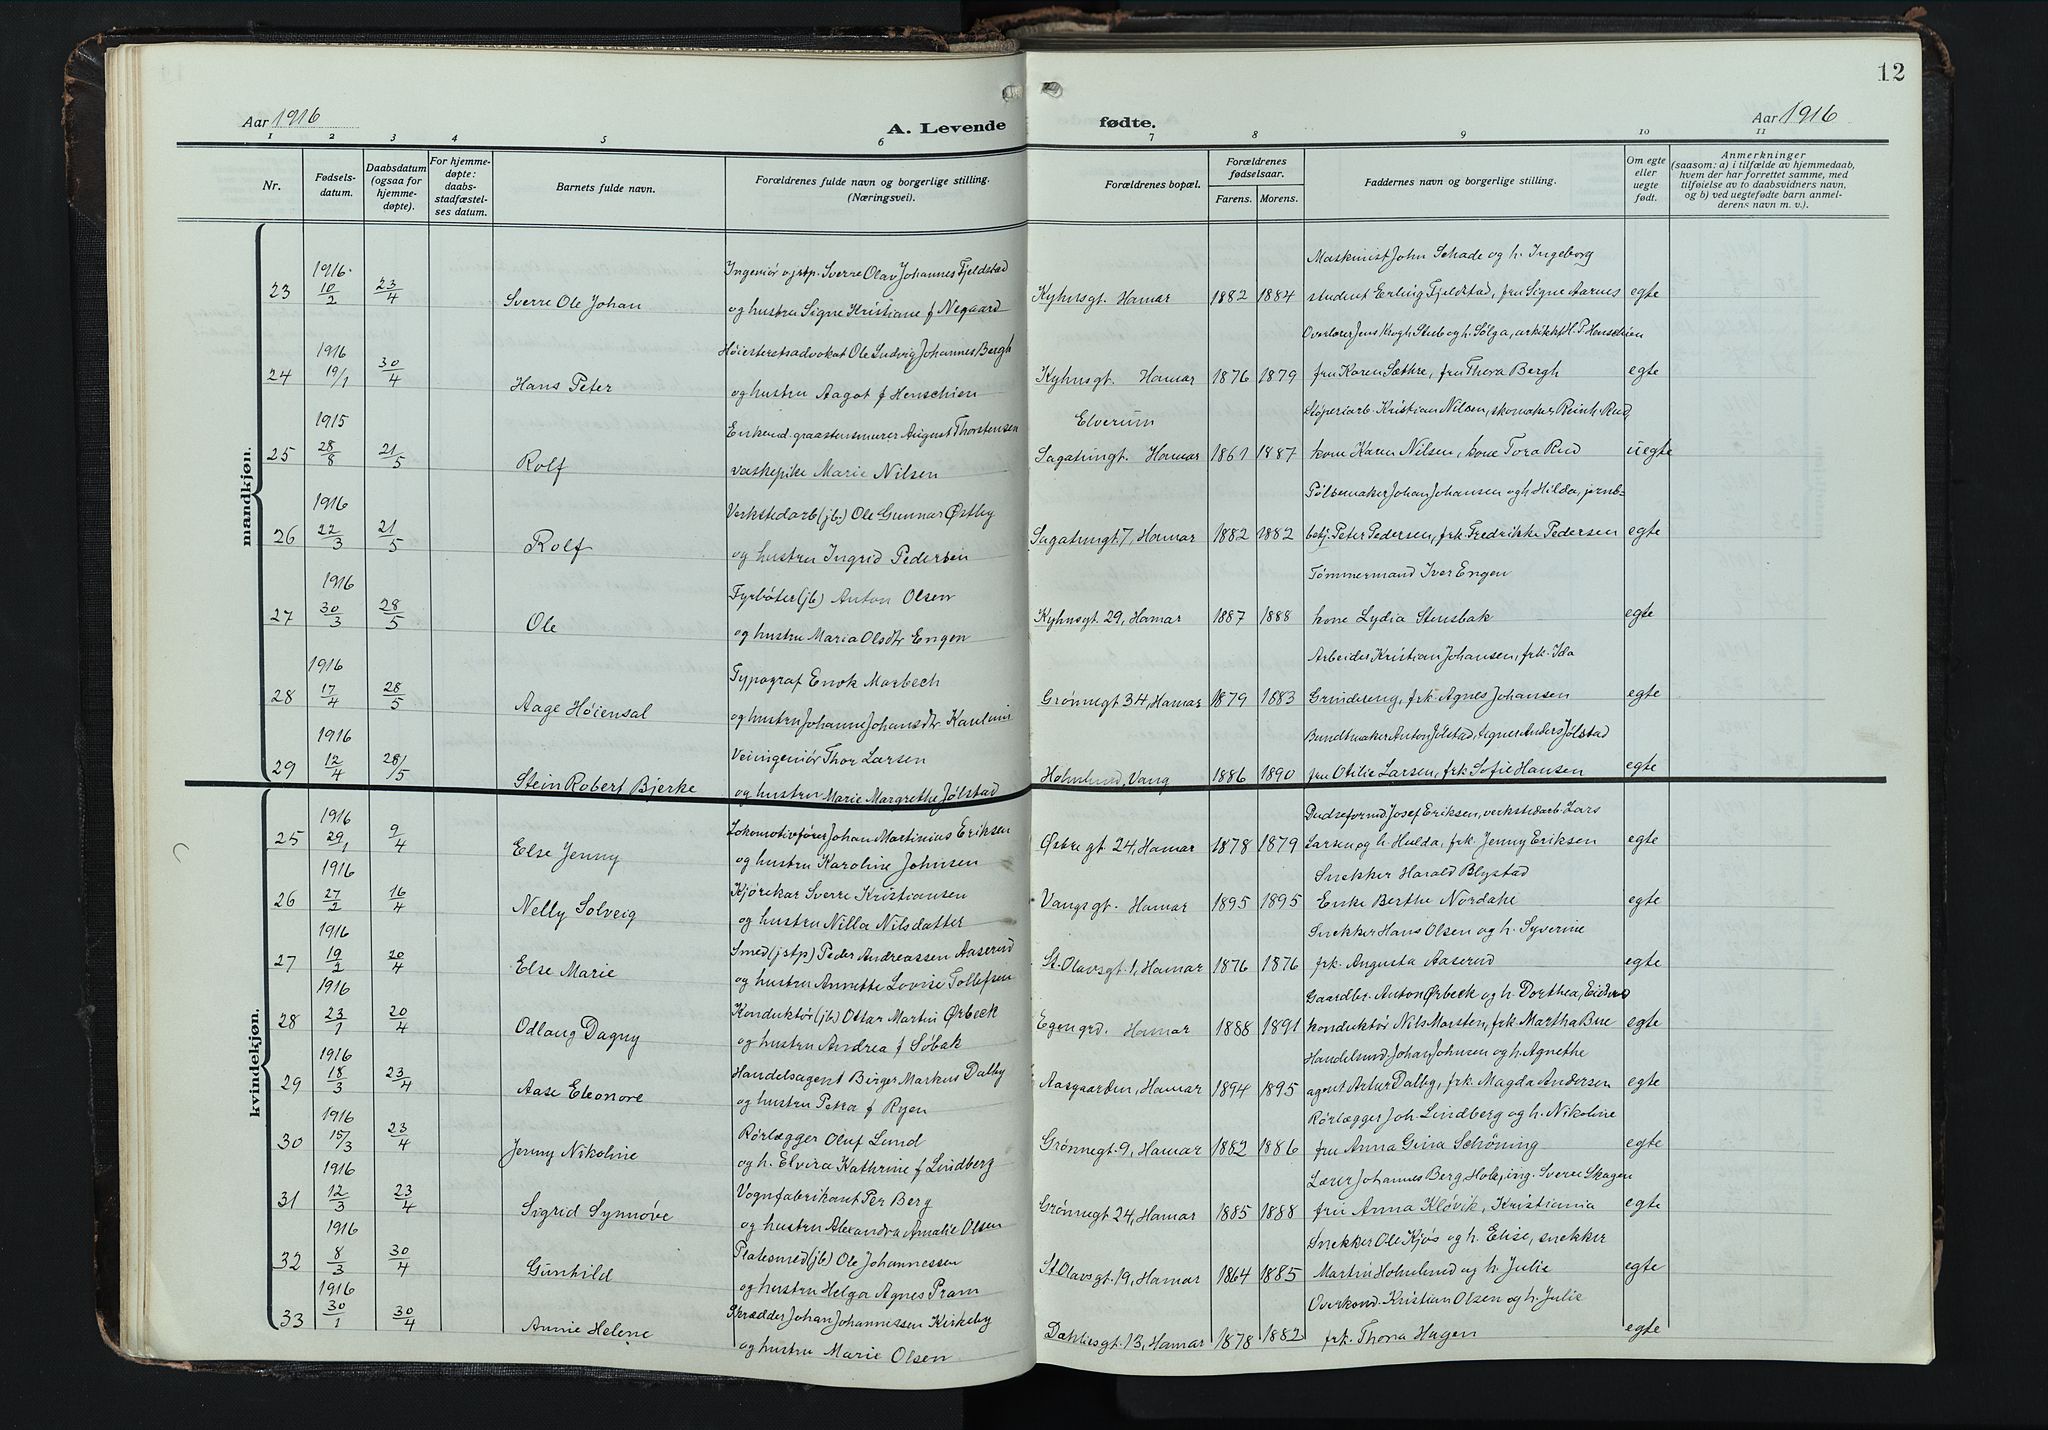 12
Aar 1916
A. Levende fødte.
Aar 1916
1 2 3 4 5 6 7 8 9 10 11
Nr.
Fødsels-
datum.
Daabsdatum
(ogsaa for
hjemme-
døpte).
For hjemme-
døpte:
daabs-
stadfæstel-
ses datum.
Barnets fulde navn.
Forældrenes fulde navn og borgerlige stilling.
(Næringsvei).
Forældrenes bopæl.
Forældrenes
fødselsaar.
Farens. Morens.
Faddernes navn og borgerlige stilling.
Om egte
eller
uegte
født.
Anmerkninger
(saasom: a) i tilfælde av hjemmedaab,
hvem der har forrettet samme, med
tilføielse av to daabsvidners navn,
og b) ved uegtefødte barn anmel-
derens navn m. v.).
mandkjøn.
1916 Ingeniør v. jstp. Sverre Olav Johannes Fjeldstad Maskinist John Schade og h. Ingeborg
23 10/2 23/4 Sverre Ole Johan og hustru Signe Kristiane f Negaard Kyhnsgt. Hamar 1882 1884 student Erling Fjeldstad, fru Signe Aarnes egte
1916 Høiesteretsadvokat Ole Ludvig Johannes Bergh Overlærer Jens Krogh Stub og h. Sølga, arkitekt H. P. Henschien
24 19/1 30/4 Hans Peter og hustru Aagot f Henschien Kyhnsgt. Hamar 1876 1879 fru Karen Sæthre, fru Thora Bergh egte
1915 Enkemd. graastensmurer August Thorstensen Elverum Støperiarb. Kristian Nilsen, skomaker Reinh. Rud,
25 28/8 21/5 Rolf vaskepike Marie Nilsen Sagatungt. Hamar 1861 1887 kone Karen Nilsen, kone Tora Rud uegte
1916 Verkstedarb (jb.) Ole Gunnar Østby Pølsemaker Johan Johansen og h Hilda, jernb-
26 22/3 21/5 Rolf og hustru Ingrid Pedersen Sagatungt 7, Hamar 1882 1882 betj. Peter Pedersen, frk. Fredrikke Pedersen egte
1916 Fyrbøter (jb) Anton Olsen Tømmermand Iver Engen
27 30/3 28/5 Ole og hustru Maria Olsdtr Engen Kyhnsgt. 29, Hamar 1887 1888 kone Lydia Stensbak egte
1916 Typograf Enok Marbech Arbeider Kristian Johansen, frk. Ida
28 17/4 28/5 Aage Høiensal og hustru Johanne Johansdtr. Grønnegt 34, Hamar 1879 1883 Grindereng, frk. Agnes Johansen egte
1916 Veiingeniør Thor Larsen Bundtmaker Anton Jølstad, Anders Jølstad
29 12/4 28/5 Stein Robert Bjerke og hustru Marie Margrethe Jølstad Holmlund, Vang 1886 1890 fru Otilie Larsen, frk. Sofie Hansen egte
kvindekjøn.
1916 Lokomotivfører Johan Martinius Eriksen Josef Eriksen, verkstedarb. Lars
25 29/1 9/4 Else Jenny og hustru Karoline Johnsen Østre gt 24, Hamar 1878 1879 Larsen og h. Hulda, frk. Jenny Eriksen egte
1916 Kjørekar Sverre Kristiansen Snekker Harald Blystad
26 27/2 16/4 Nelly Solveig og hustru Nilla Nilsdatter Vangs gt. Hamar 1895 1895 Enke Berthe Nordahl egte
1916 Smed (jstp) Peder Andreassen Aaserud Snekker Hans Olsen og h. Syverine
27 19/2 20/4 Else Marie og hustru Annette Lovise Tollefsen St. Olavsgt. 1, Hamar 1876 1876 frk. Augusta Aaserud egte
1916 Konduktør (jb) Ottar Martin Ørbeck Gaardbr. Anton Ørbeck og h. Dorthea, Eidsvold
28 23/1 20/4 Odlaug Dagny og hustru Andrea f Søbak Egengrd. Hamar 1888 1891 konduktør Nils Marsten, frk. Martha Bue egte
1916 Handelsagent Birger Markus Dalby Handelsmd. Johan Johnsen og h. Agnethe
29 18/3 23/4 Aase Eleonore og hustru Petra f Ryen Aasgaarden, Hamar 1894 1895 agent Artur Dalby, frk. Magda Andersen egte
1916 Rørlægger Oluf Lund Rørlægger Joh. Lindberg og h. Nikoline
30 15/3 23/4 Jenny Nikoline og h. Elvira Kathrine f Lindberg Grønnegt. 9, Hamar 1882 1886 fru Anna Gina Schöning egte
1916 Vognfabrikant Per Berg Lærer Johannes Berg Hole, ing. Sverre Skagen
31 12/3 23/4 Sigrid Synnøve og hustru Alexandra Amalie Olsen Grønnegt 24, Hamar 1885 1888 fru Anna Kløvik, Kristiania egte
1916 Platesmed (jb) Ole Johannessen Snekker Ole Kjøs og h. Elise, snekker
32 8/3 30/4 Gunhild og hustru Helga Agnes Pram St. Olavsgt. 19, Hamar 1864 1885 Martin Holmlund og h. Julie egte
1916 Skrædder Johan Johannessen Kirkeby Overkond. Kristian Olsen og h. Julie
33 30/1 30/4 Annie Helene og hustru Marie Olsen Dahliesgt. 13, Hamar 1878 1882 frk. Thora Hagen egte